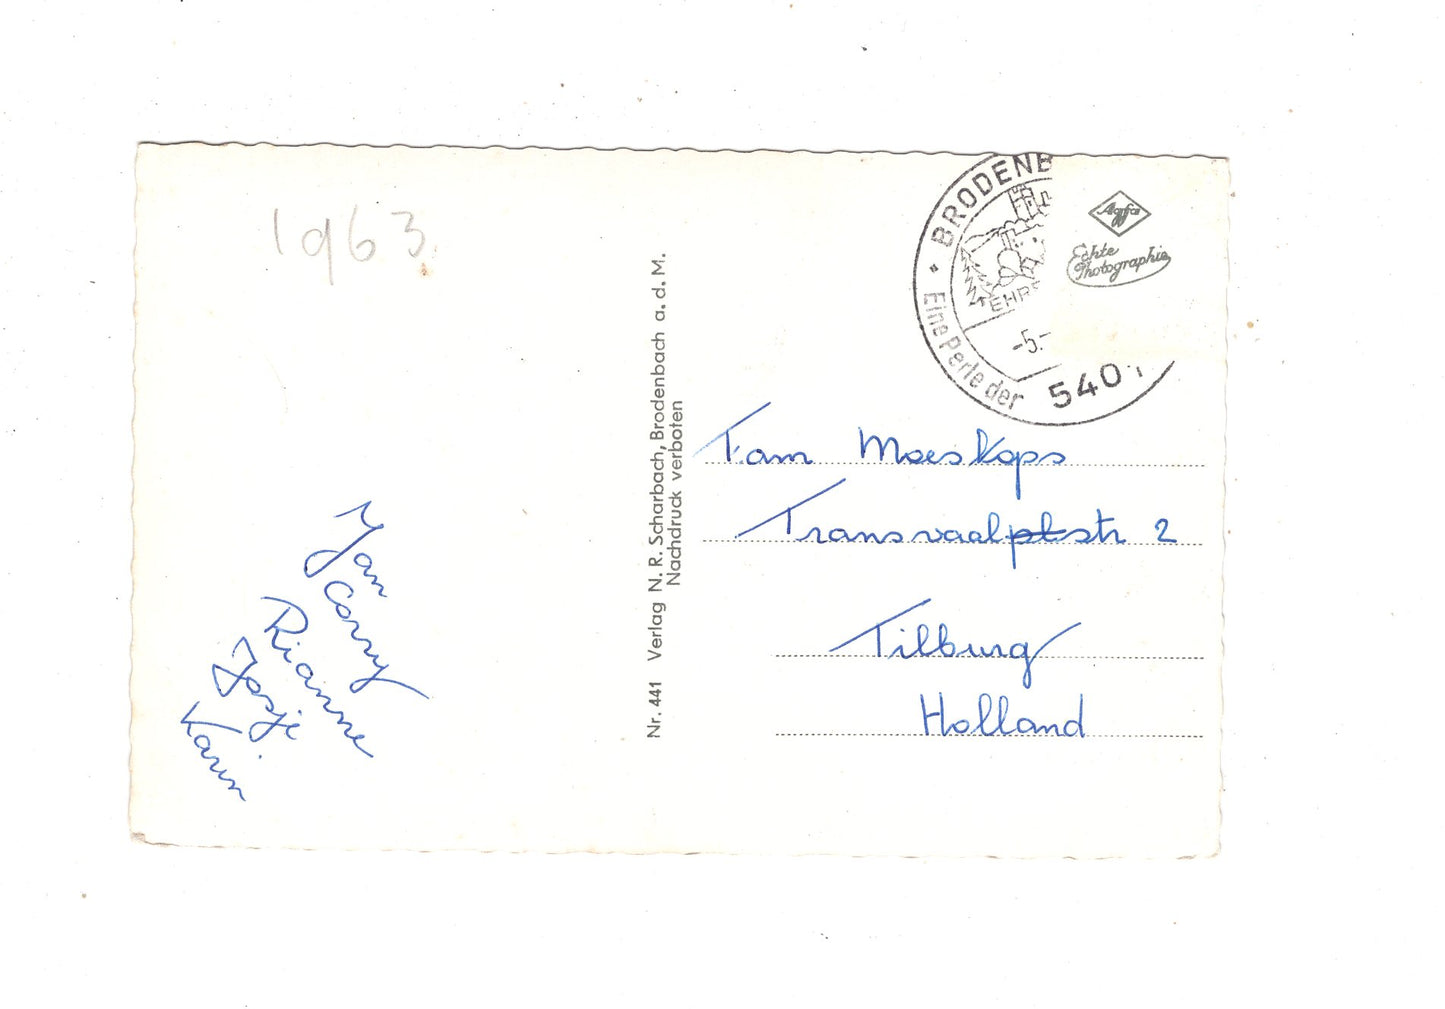 1963.
BRODENB
EHRE
-5.-
Eine Perle der
5401
Agfa
Echte
Photographie
Nr. 441 Verlag N. R. Scharbach, Brodenbach a. d. M.
Nachdruck verboten
Fam Moeskops
Transvaalplstr 2
Tilburg
Holland
Jan
Corry
Rianne
Josje
Karin